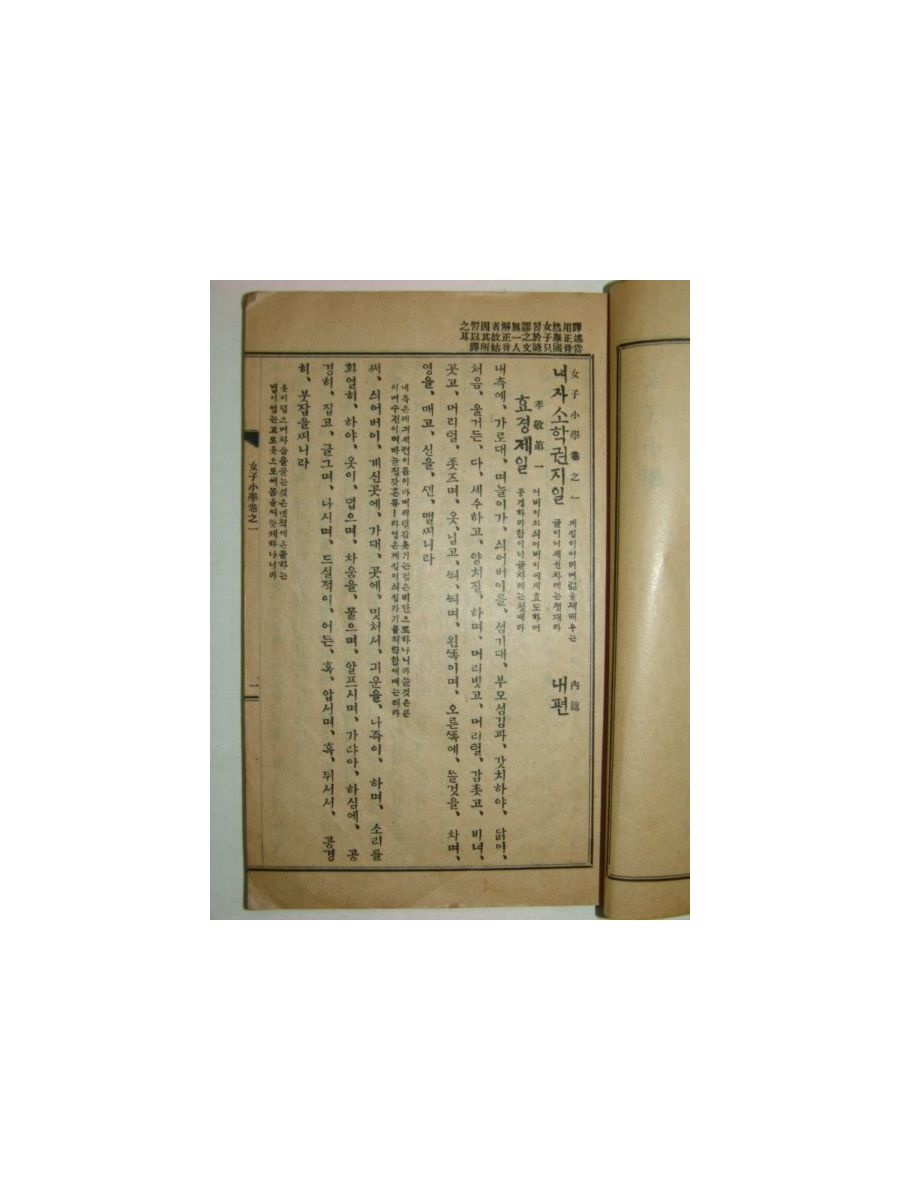 譯述當
用正音
然擧國
女子只
習於諺
譯之文
無一人
解正音
者故姑
因其所
習以譯
之耳
女子小學卷之一 內篇
녀자소학권지일 내편
계집이어려며
글이니 권차례는첫재라
孝敬第一
효경제일
어버이와싀어버이에게효도하며
공경하라함이니글차례는첫째라
내측에、가로대、며늘이가、싀어버이를、섬기대、부모섬김과、갓치하야、닭이、
처음、울거든、다、세수하고、양치질、하며、머리빗고、머리털、감촛고、비녀、
꼿고、머리털、줏즈며、옷、닙고、띄、띄며、왼쪽이며、오른쪽에、쓸것을、차며、
영을、매고、신을、신、맬찌니라
내측은례긔책편이름이라머리털감촛기는검은비단으로하나니라쓸것은문
이며수건이며바늘집갓흔류ㅣ라영은계집이싀집가기를허락함에매는띄라
써、싀어버이、계신곳에、가대、곳에、밋처서、긔운을、나즉이、하며、소리를
화열히、하야、옷이、덥으며、차움을、물으며、알프시며、가랴아、하심에、공
경히、집고、글그며、나시며、드실적이、어든、혹、압서며、혹、뒤서서、공경
히、붓잡을찌니라
옷이덥으며차움을뭇는것은
법이엿는고로옷으로써몸을 하나니라
女子小學卷之一
一